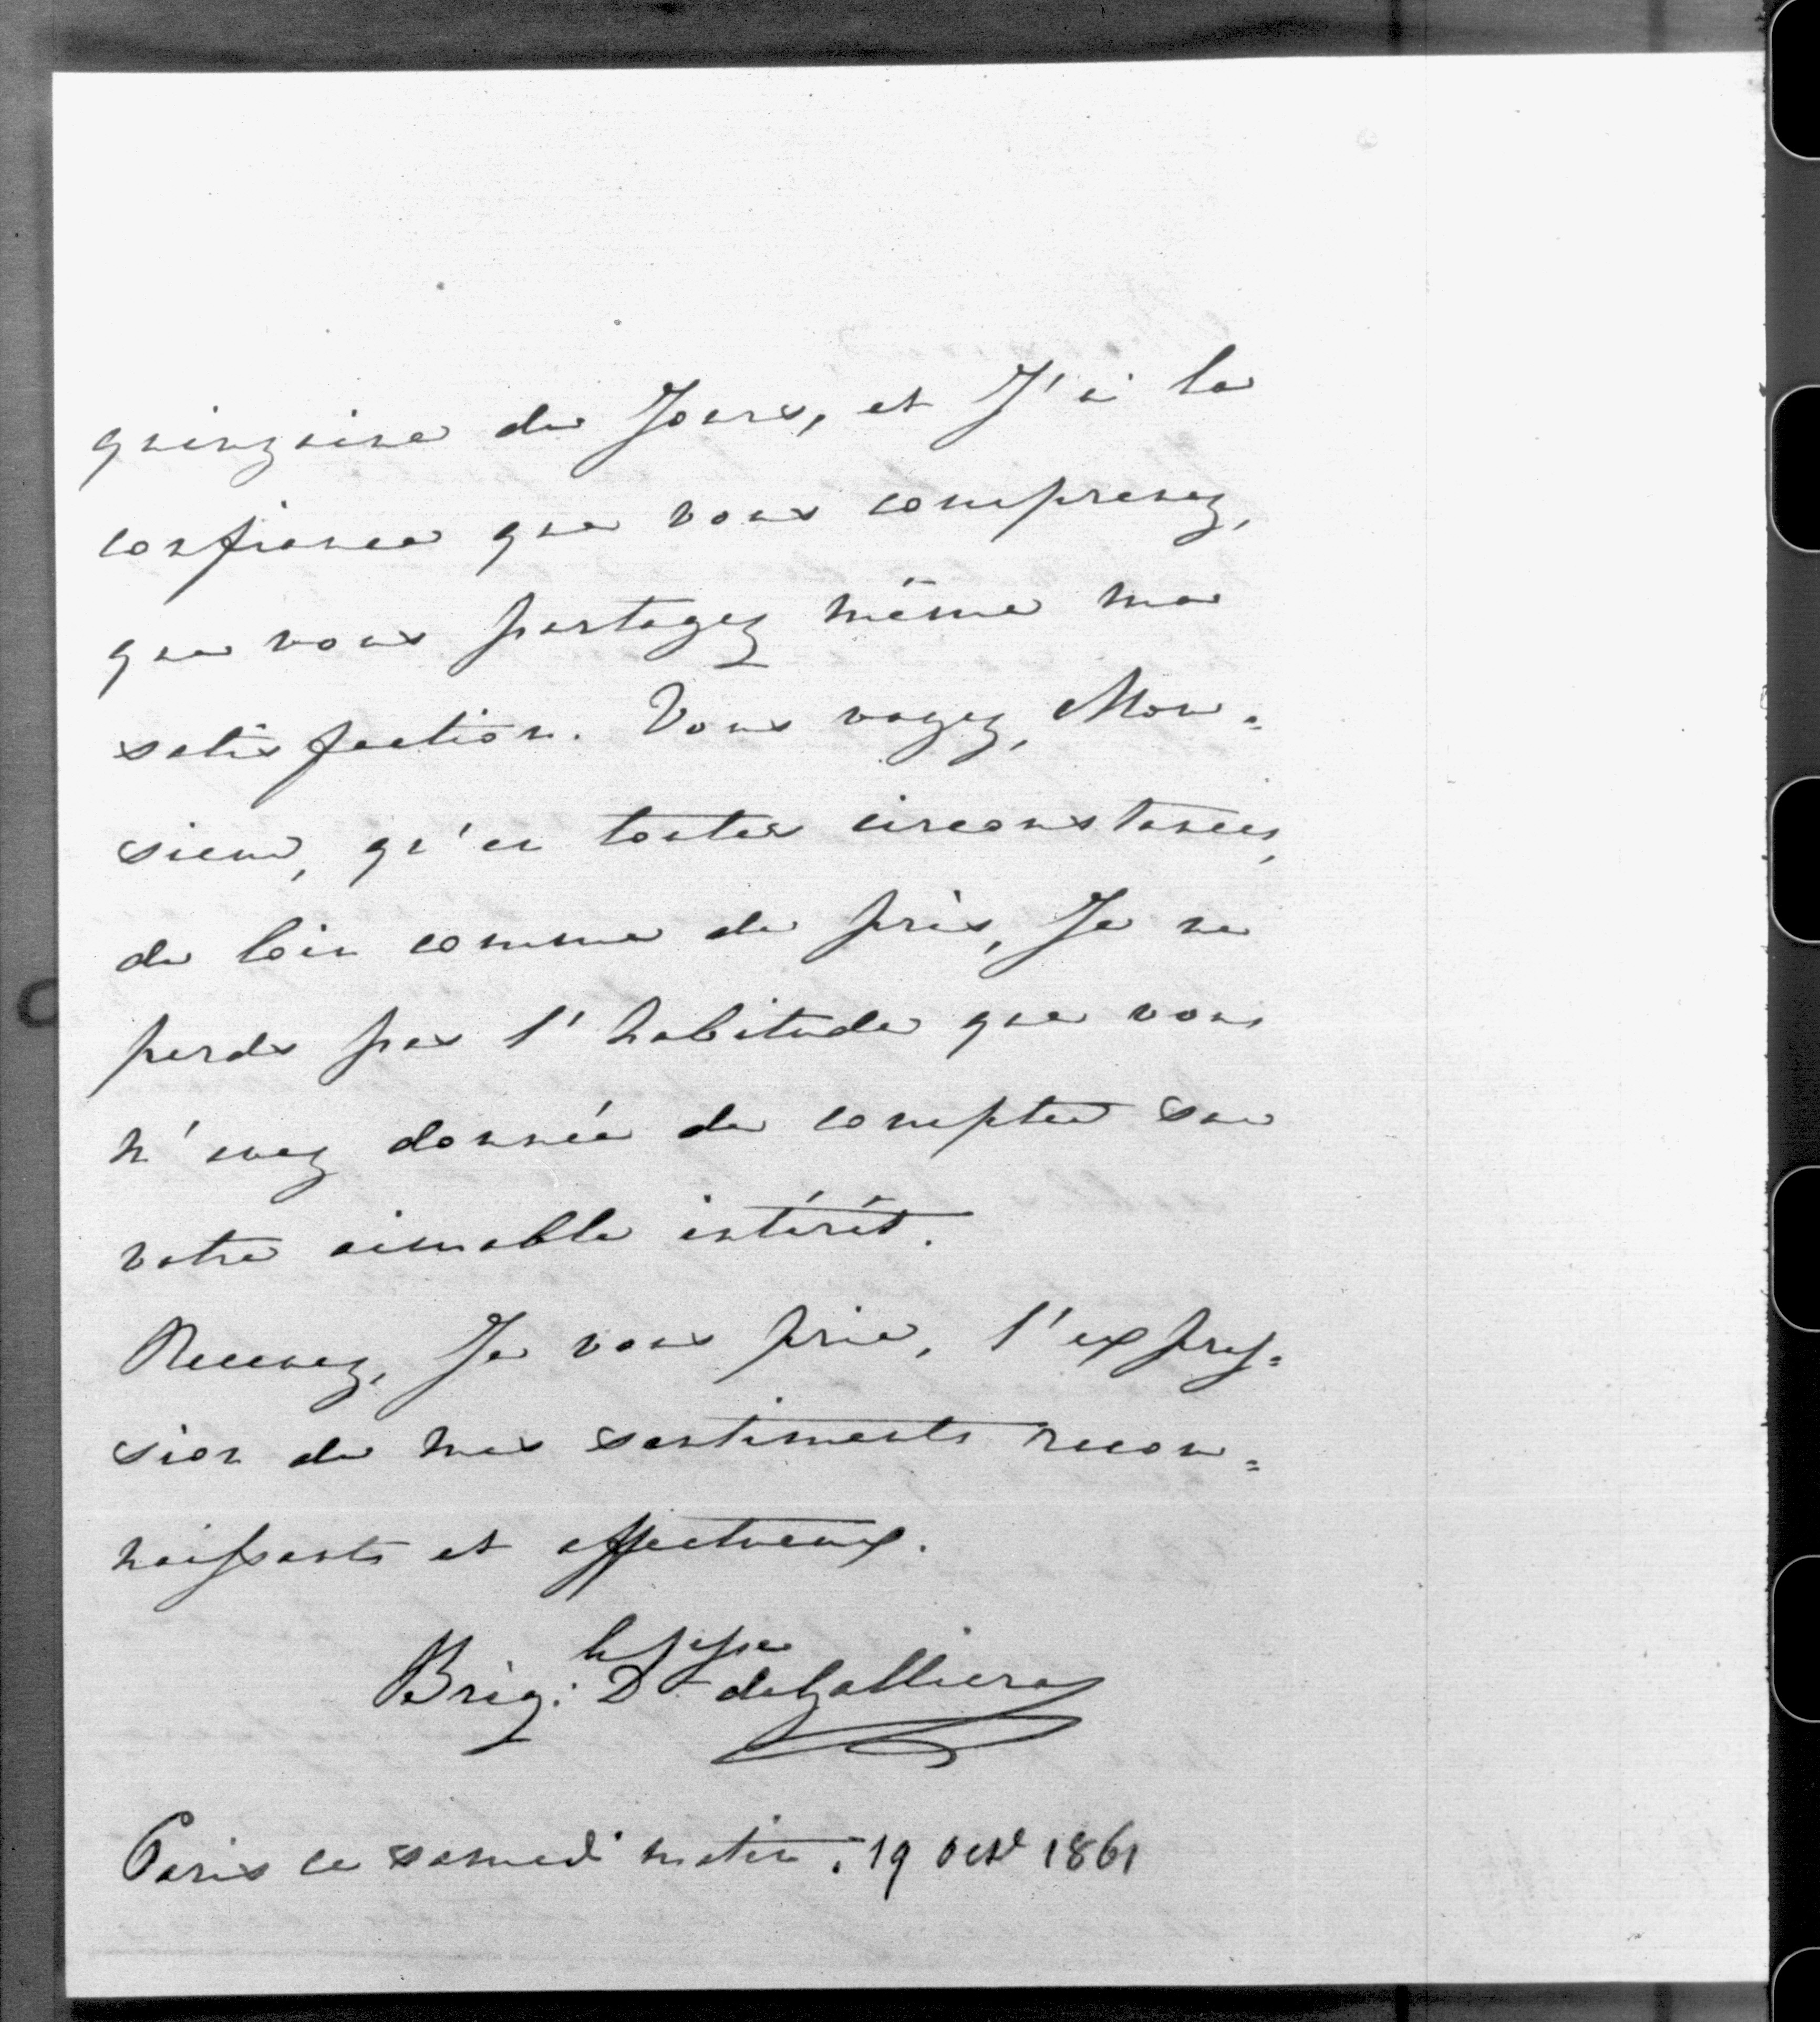 quinzaine de Jours, et J'ai la
confiance que vous comprenez,
que vous partagez même ma
satisfaction. Vous voyez, Mon=
sieur, qu'en toutes circonstances,
de loin comme de près, Je ne
perds pas l'habitude que vous
m'avez donnée de compter sur
votre aimable intérêt.
Recevez, Je vous prie, l'expres=
sion de mes sentiments recon=
naissants et affectueux.
Brig: Dsse de Galliera
Paris ce samedi matin. 19 oct 1861